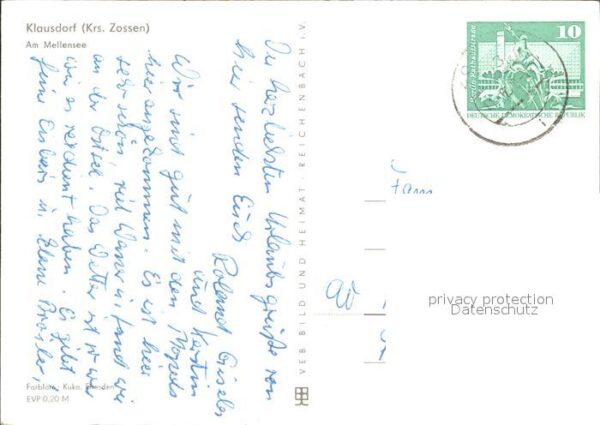 Klausdorf (Krs. Zossen)
Am Mellensee
Die herzlichsten Urlaubsgrüße von
hier senden Euch
Roland Gisela
und Kerstin
Wir sind gut mit den Mopeds
hier angekommen. Es ist hier
sehr schön, viel Wasser u. Sand wie
an der Ostsee. Das Wetter ist so wie
wir es verdient haben. Es gibt
feine Eisbein u.
Farbfoto: Kuka, Dresden
EVP 0,20 M
VEB BILD UND HEIMAT · REICHENBACH i. V.
10
DEUTSCHE DEMOKRATISCHE REPUBLIK
Fam
privacy protection
Datenschutz